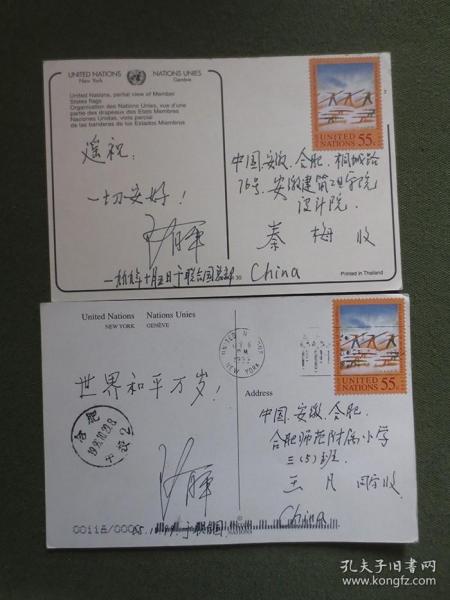 UNITED NATIONS
New York
NATIONS UNIES
Genève
United Nations, partial view of Member
States flags
Organisation des Nations Unies, vue d'une
partie des drapeaux des Etats Membres
Naciones Unidas, vista parcial
de las banderas de los Estados Miembros
遥祝:
一切安好!
UNITED
NATIONS 55c
中国.安徽.合肥.桐城路
76号.安徽建筑工业学院
设计院.
秦 梅 收
China
Printed in Thailand
United Nations
NEW YORK
Nations Unies
GENÈVE
NEW YORK
UNITED
NATIONS 55c
世界和平万岁!
合肥
Address
中国.安徽.合肥.
合肥师范附属小学
三(5)班
王 凡 同学收
China
孔夫子旧书网
www.kongfz.com